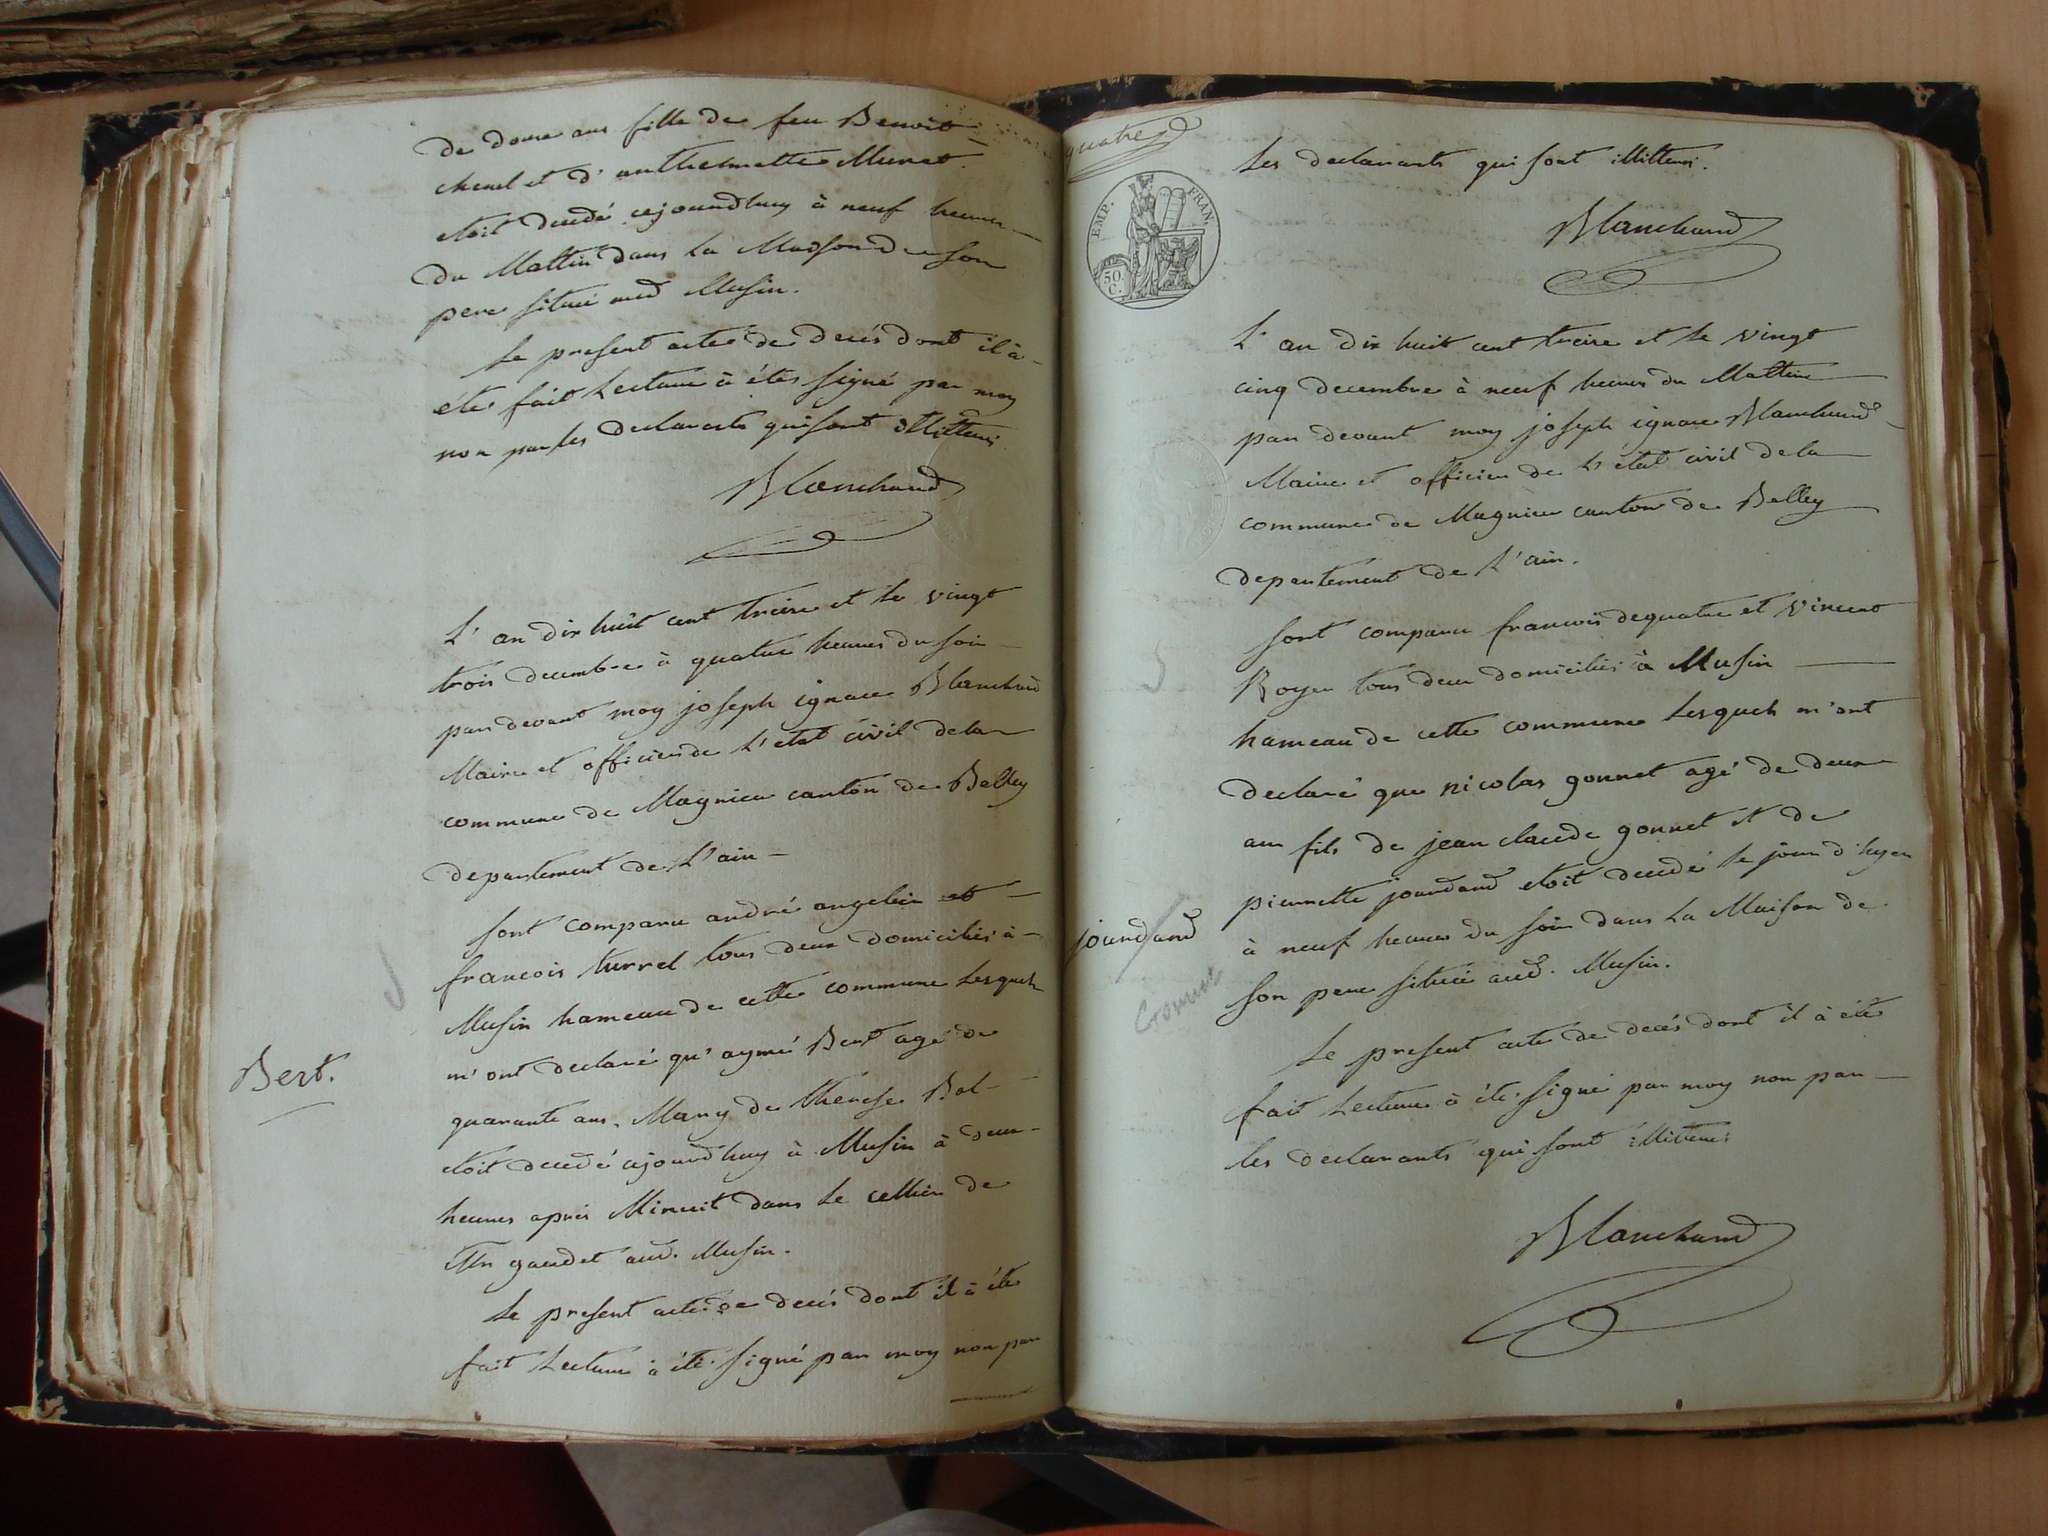 de douze ans fille de feu Benoit
chenel et d'anthelmette Munet
etoit decedé cejourdhuy à neuf heures
du Mattin dans la Maison de son
pere située aud Musin.
Le present acte de decés dont il à
été fait Lecture à étés signé par moy
non par les declarants qui sont illitterés
Blanchard
L'an dix huit cent treize et le vingt
trois decembre à quatre heures du soir
par devant moy joseph ignace Blanchard
Maire et officier de L'etat civil de la
commune de Magnieu canton de Belley
departement de L'ain
sont comparu andré angelier et
francois turrel tous deux domiciliés à
Musin hameau de cette commune Lesquels
m'ont declaré qu'aymé Bert agé de
Bert.
quarante ans, Mary de therese Bal
etoit decedé cejourdhuy à Musin à deux
heures aprés Minuit dans Le cellier de
Mr gaudet aud. Musin.
Le present acte de decés dont il à été
fait Lecture à été signé par moy non par
quatre
EMP. FRAN.
50 C.
Les declarants qui sont illitterés.
Blanchard
L'an dix huit cent treize et le vingt
cinq decembre à neuf heures du Mattin
par devant moy joseph ignace Blanchard
Maire et officier de L'état civil de la
commune de Magnieu canton de Belley
departement de L'ain.
sont comparu francois dequatre et vincent
Royer tous deux domiciliés à Musin
hameau de cette commune Lesquels m'ont
declaré que nicolas gonnet agé de deux
ans fils de jean claude gonnet et de
pierrette jourdand etoit decedé le jour d'hyer
jourdand
à neuf heures du soir dans La Maison de
Gonnet
son pere située aud. Musin.
Le present acte de decés dont il à été
fait Lecture à été signé par moy non par
les declarants qui sont illitterés
Blanchard